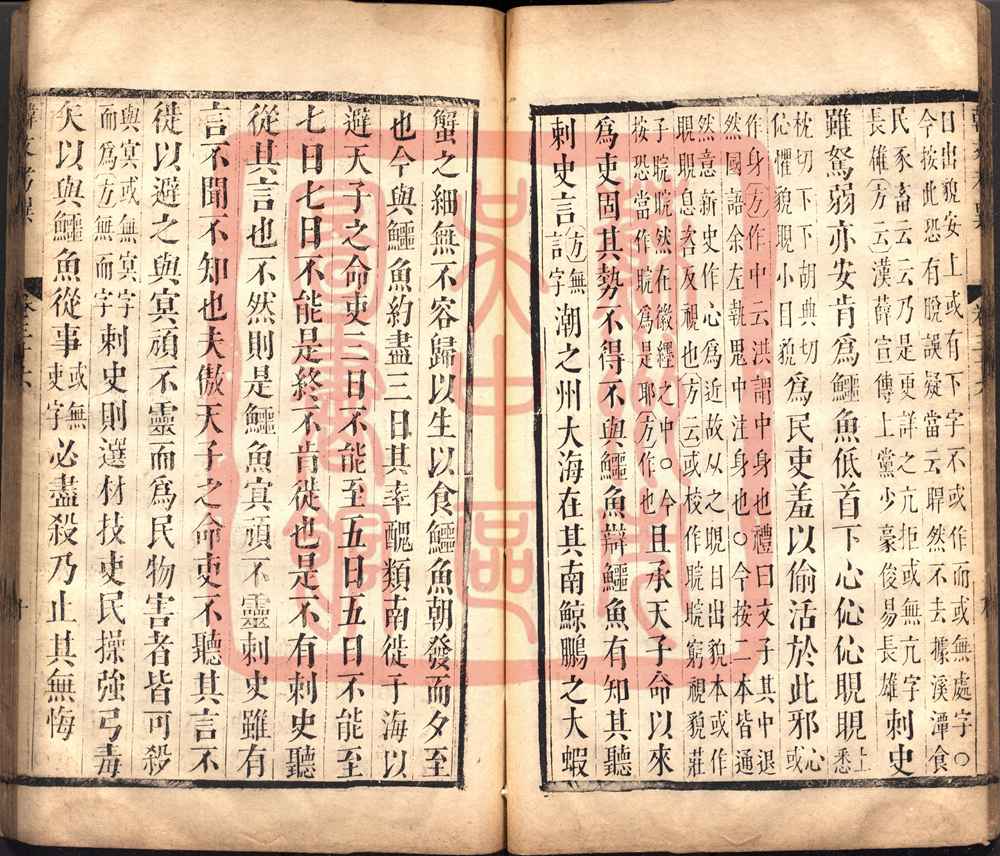 日出貌安上或有下字不或作而或無處字○
今按此恐有脫誤疑當云睅然不去據溪潭食
民豕畜云云乃是更詳之亢拒或無亢字刺史
長雄方云漢薛宣傳上黨少豪俊易長雄
雖駑弱亦安肯爲鱷魚低首下心伈伈睍睍上悉
枕切下下胡典切
伈懼貌睍小目貌爲民吏羞以偷活於此邪或心
作身方作中云洪謂中身也禮曰文子其中退
然國語余左執鬼中注身也○今按二本皆通
然意新史作心爲近故从之睍日出貌本或作
睍睍息咨反視也方云或校作睆睆窮視貌莊
子睆睆然在徽纆之中○今
按恐當作睆爲是耶方作也且承天子命以來
爲吏固其勢不得不與鱷魚辯鱷魚有知其聽
刺史言方無言字潮之州大海在其南鯨鵬之大蝦
蟹之細無不容歸以生以食鱷魚朝發而夕至
也今與鱷魚約盡三日其率醜類南徙于海以
避天子之命吏三日不能至五日五日不能至
七日七日不能是終不肯徙也是不有刺史聽
從其言也不然則是鱷魚㝠頑不靈刺史雖有
言不聞不知也夫傲天子之命吏不聽其言不
徙以避之與㝠頑不靈而爲民物害者皆可殺
與㝠或無㝠字
而爲方無而字刺史則選材技吏民操強弓毒
矢以與鱷魚從事或無吏字必盡殺乃止其無悔